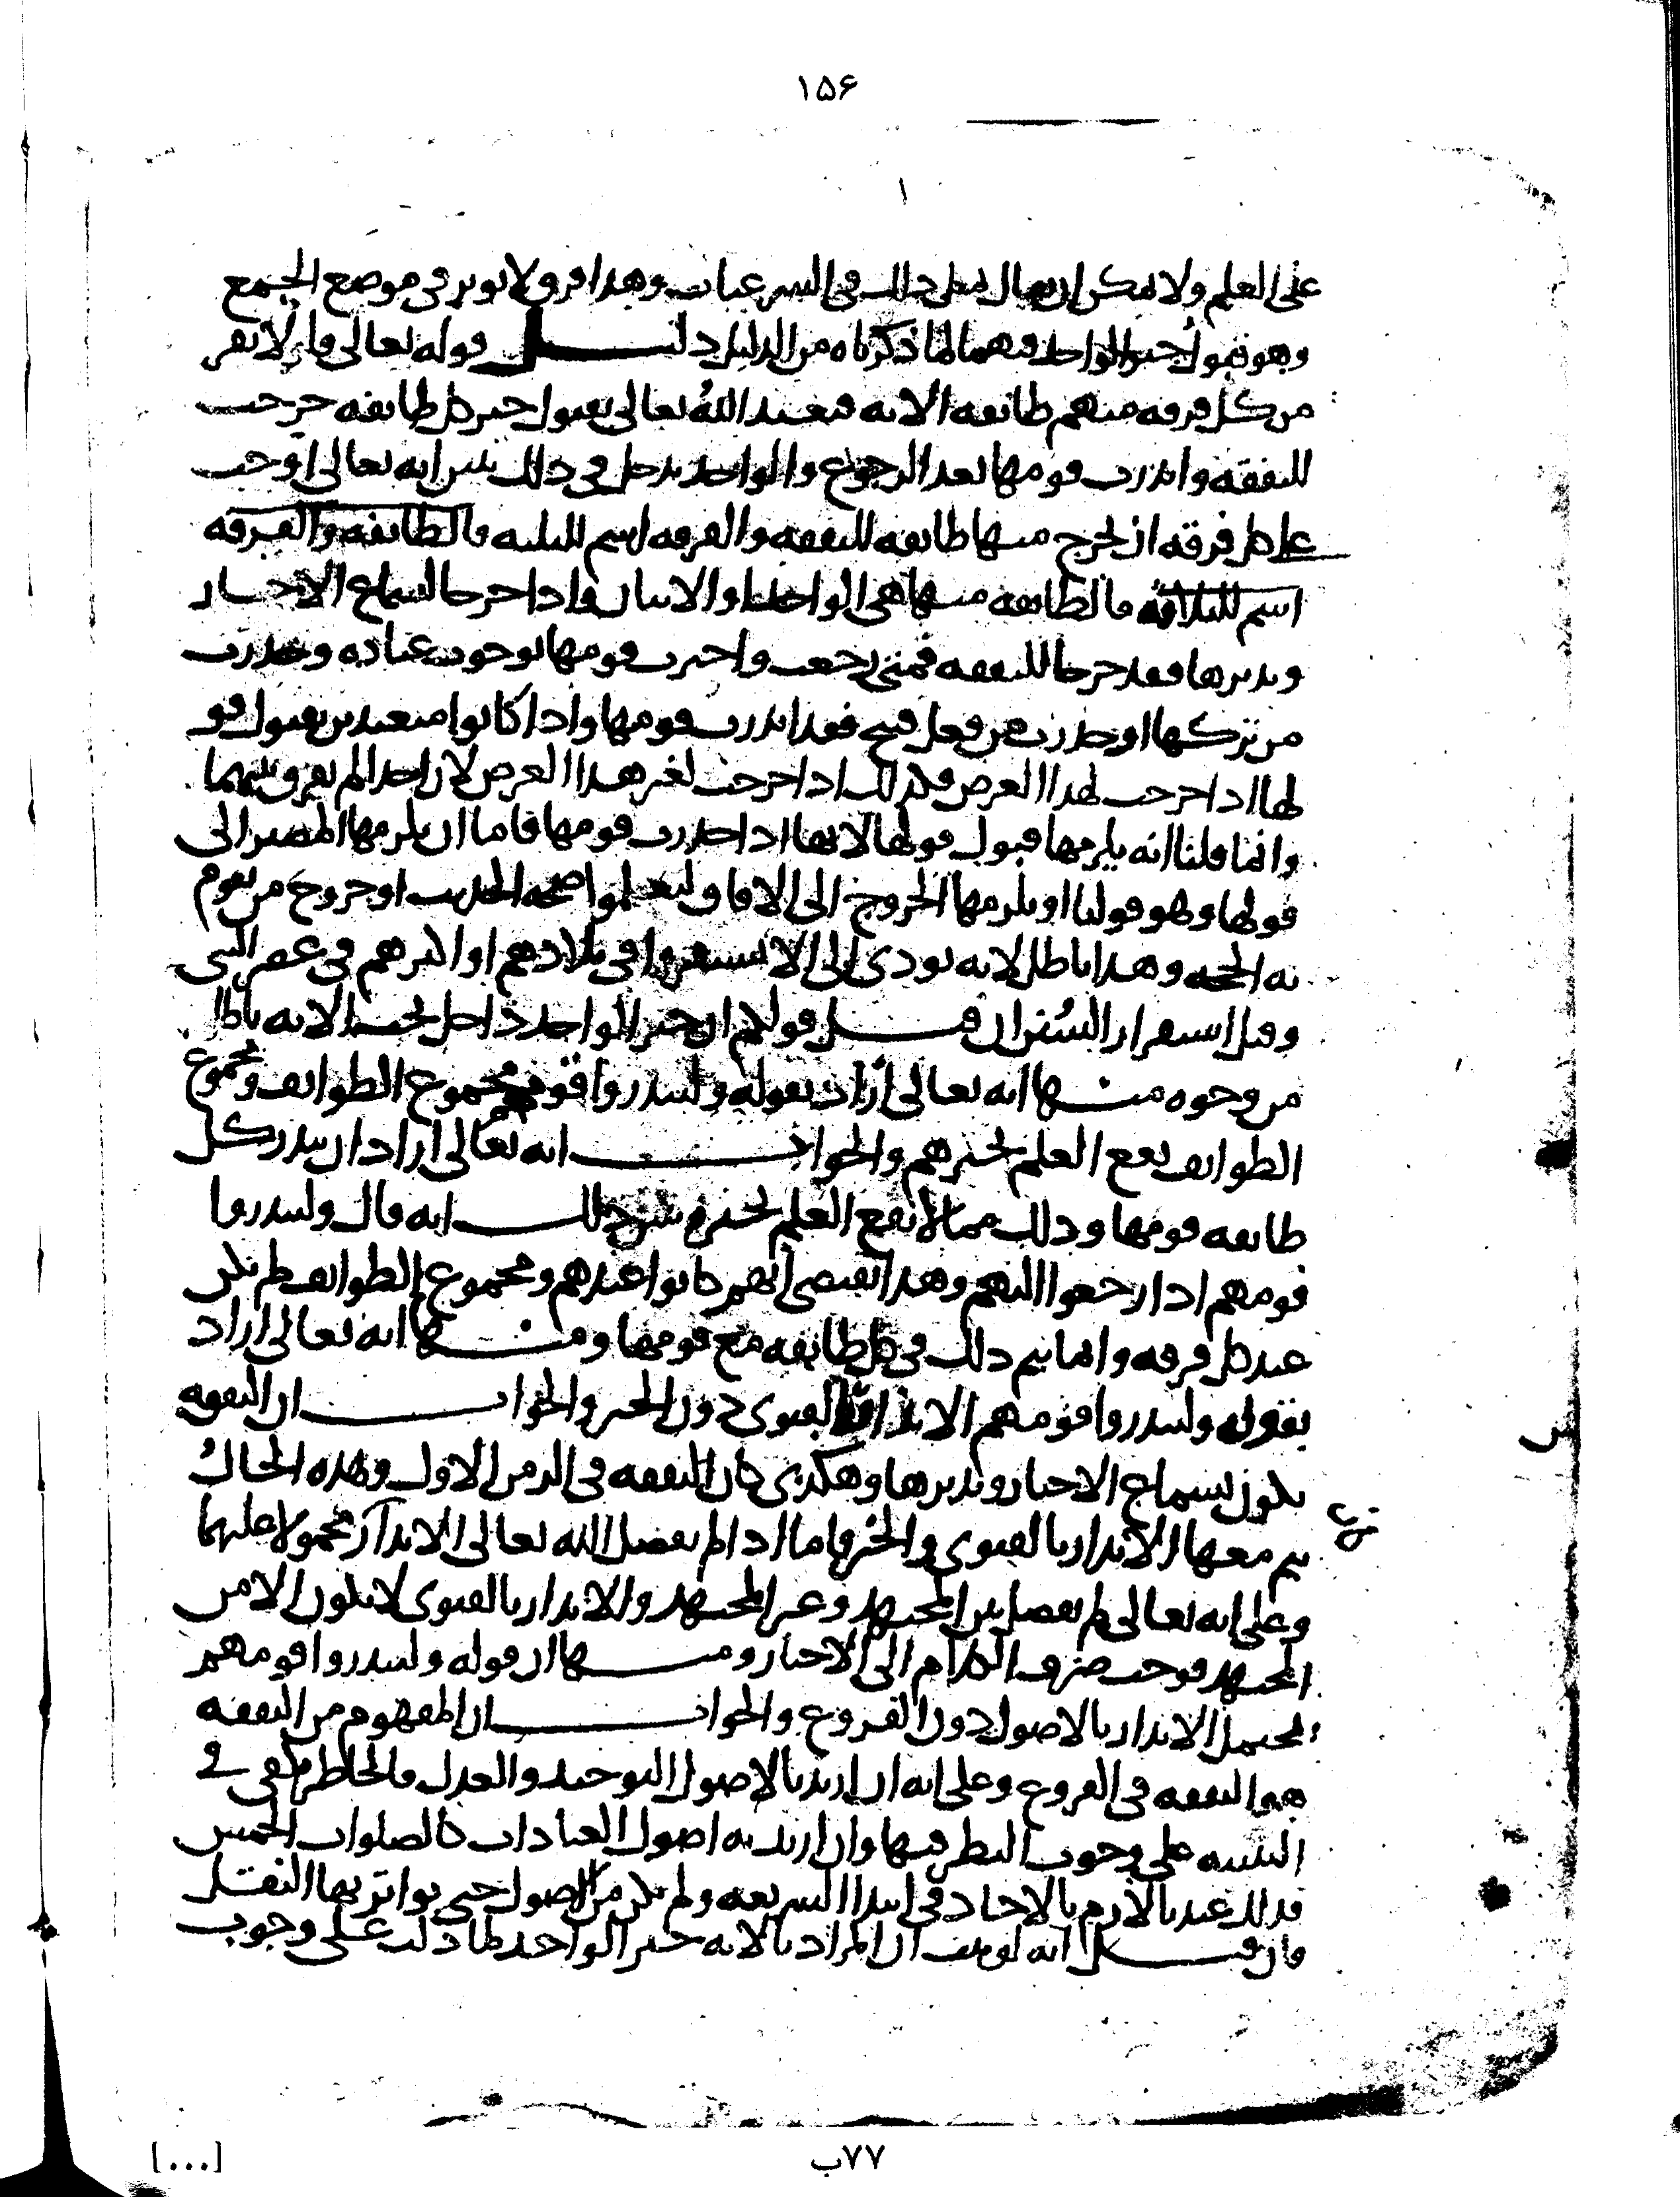 ١۵۶
على العلم ولا يمكن ان يقال مثل ذلك فى الشرعيات وهذا فرق لا يوثر فى موضع الجمع
وهو قبول خبر الواحد فيهما لما ذكرناه من الدليل دليل قوله تعالى فلولا نفر
من كل فرقه منهم طائفه الآيه فتعبد الله تعالى بقبول خبر كل طائفه خرجت
للتفقه وانذرت قومها بعد الرجوع والواحد يدخل فى ذلك يبين انه تعالى اوجب
على كل فرقه ان يخرج منها طائفه للتفقه والفرقه اسم للثلثه فالطائفه والفرقه
اسم للثلاثه فالطائفه منها هى الواحد او الاثنان واذا خرجا لسماع الاخبار
وتدبرها فقد خرجا للتفقه فمتى رجعت واخبرت قومها بوجوب عباده وحذرت
من تركها او حذرت من فعل قبيح فقد انذرت قومها واذا كانوا متعبدين بقبول قو
لها اذا خرجت لهذا الغرض فكذلك اذا خرجت لغير هذا الغرض لان احدا لم يفرق بينهما
وانما قلنا انه يلزمها قبول قولها لانها اذا حذرت قومها فاما ان يلزمها المصير الى
قولها وهو قولنا او يلزمها الخروج الى الافاق ليعلموا صحه الحديث او خروج من يقوم
به الحجه وهذا باطل لانه يودى الى الا يستقروا فى بلادهم او اكثرهم فى عصر النبى
وقبل استقرار السنن ان قيل قولكم ان خبر الواحد داخل تحت الآيه باطل
من وجوه منها انه تعالى اراد بقوله ولينذروا قومهم مجموع الطوائف ومجموع
الطوائف يقع العلم بخبرهم والجواب انه تعالى اراد ان ينذر كل
طائفه قومها وذلك مما لا يقع العلم بخبرهم يبين ذلك انه قال ولينذروا
قومهم اذا رجعوا اليهم وهذا يقتضى انهم كانوا عندهم ومجموع الطوائف لم يكن
عند كل فرقه وانما يتم ذلك فى كل طائفه مع قومها ومنها انه تعالى اراد
بقوله ولينذروا قومهم الانذار بالفتوى دون الخبر والجواب ان التفقه
يكون بسماع الاخبار وتدبرها وهكذى كان التفقه فى الزمن الاول وهذه الحال
يتم معها الانذار بالفتوى والخبر فاما اذا لم يفصل الله تعالى الانذار محمولا عليهما
وعلى انه تعالى لم يفصل بين المجتهد وغير المجتهد والانذار بالفتوى لا يكون الا من
المجتهد فوجب صرف الكلام الى الاخبار ومنها ان قوله ولينذروا قومهم
يحتمل الانذار بالاصول دون الفروع والجواب ان المفهوم من التفقه
هو التفقه فى الفروع وعلى انه ان اريد بالاصول التوحيد والعدل فالخاطر يكفى فى
التنبيه على وجوب النظر فيها وان اريد به اصول العبادات كالصلوات الخمس
فذلك عندنا لازم بالاحاد فى ابتدا الشريعه ولم تكن من الاصول حتى تواتر بها النقل
فان قيل انه لو ثبت ان المراد بالآيه خبر الواحد لما دلت على وجوب
[...]
٧٧ب